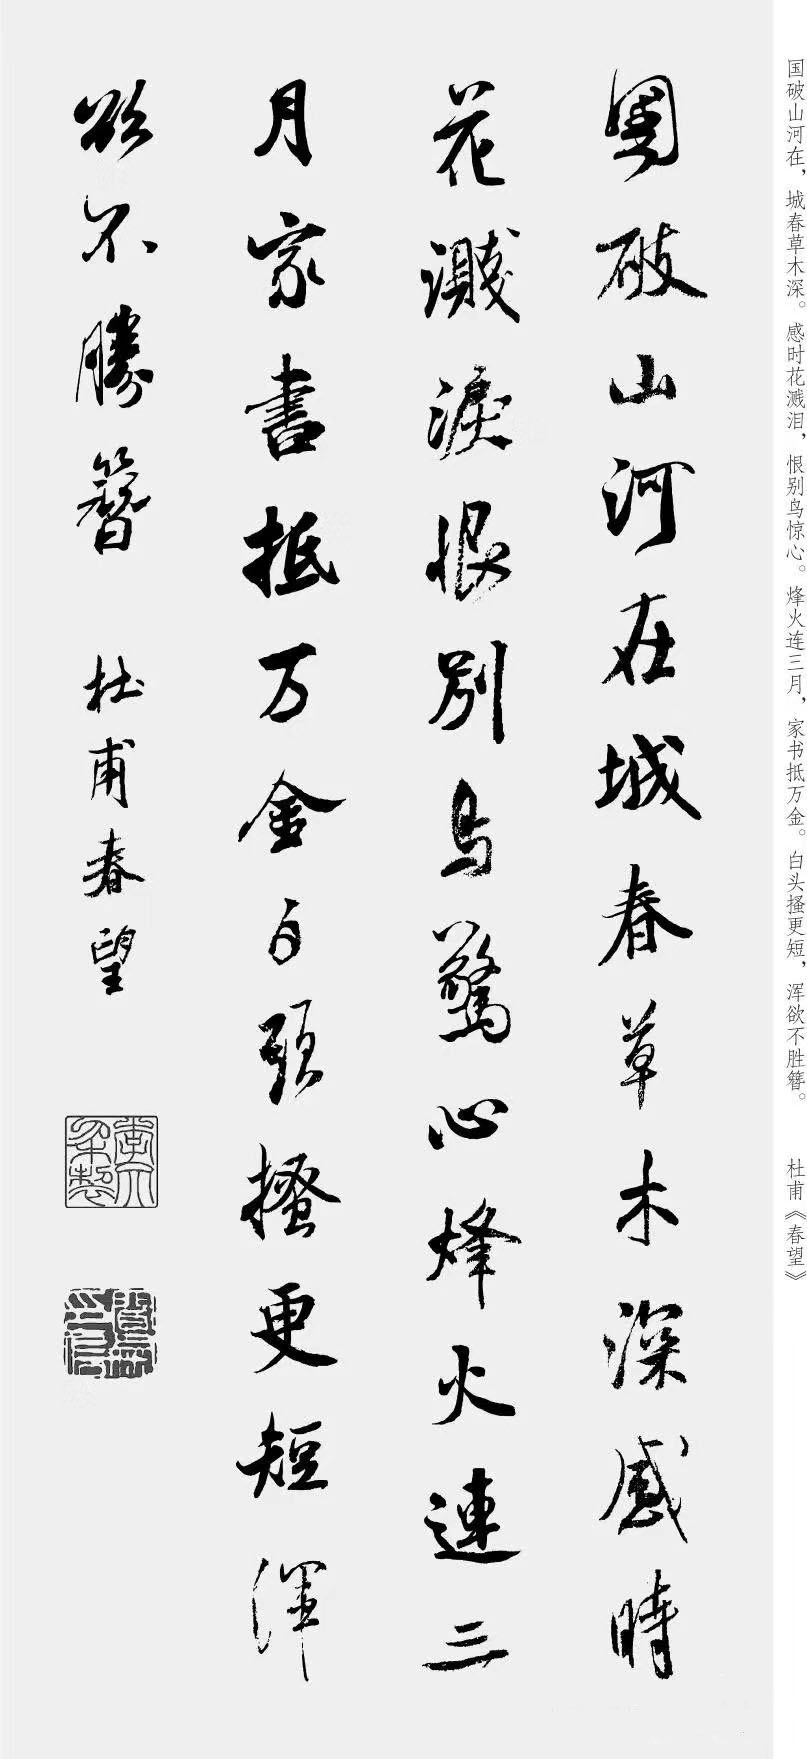 国破山河在，城春草木深。感时花溅泪，恨别鸟惊心。烽火连三月，家书抵万金。白头搔更短，浑欲不胜簪。 杜甫《春望》
國破山河在城春草木深感時
花濺淚恨別鸟驚心烽火連三
月家書抵万金白頭搔更短渾
欲不勝簪 杜甫春望